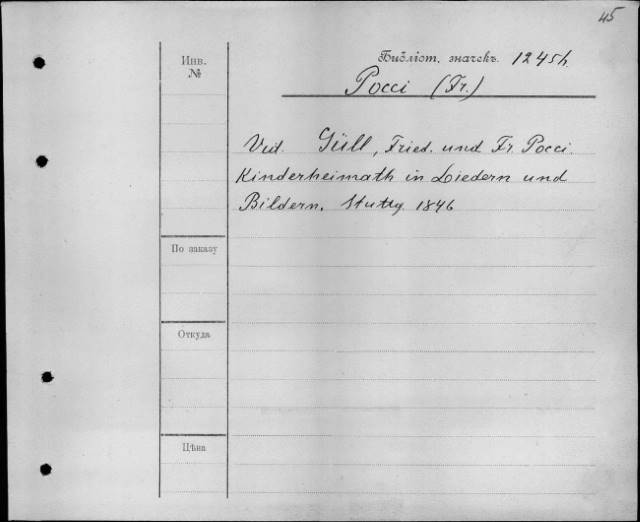 45
Инв.
№
Библіот. значекъ. 1245h.
Pocci (Fr.)
Vid. Güll, Fried. und Fr. Pocci.
Kinderheimath in Liedern und
Bildern. Stuttg. 1846
По заказу
Откуда
Цѣна